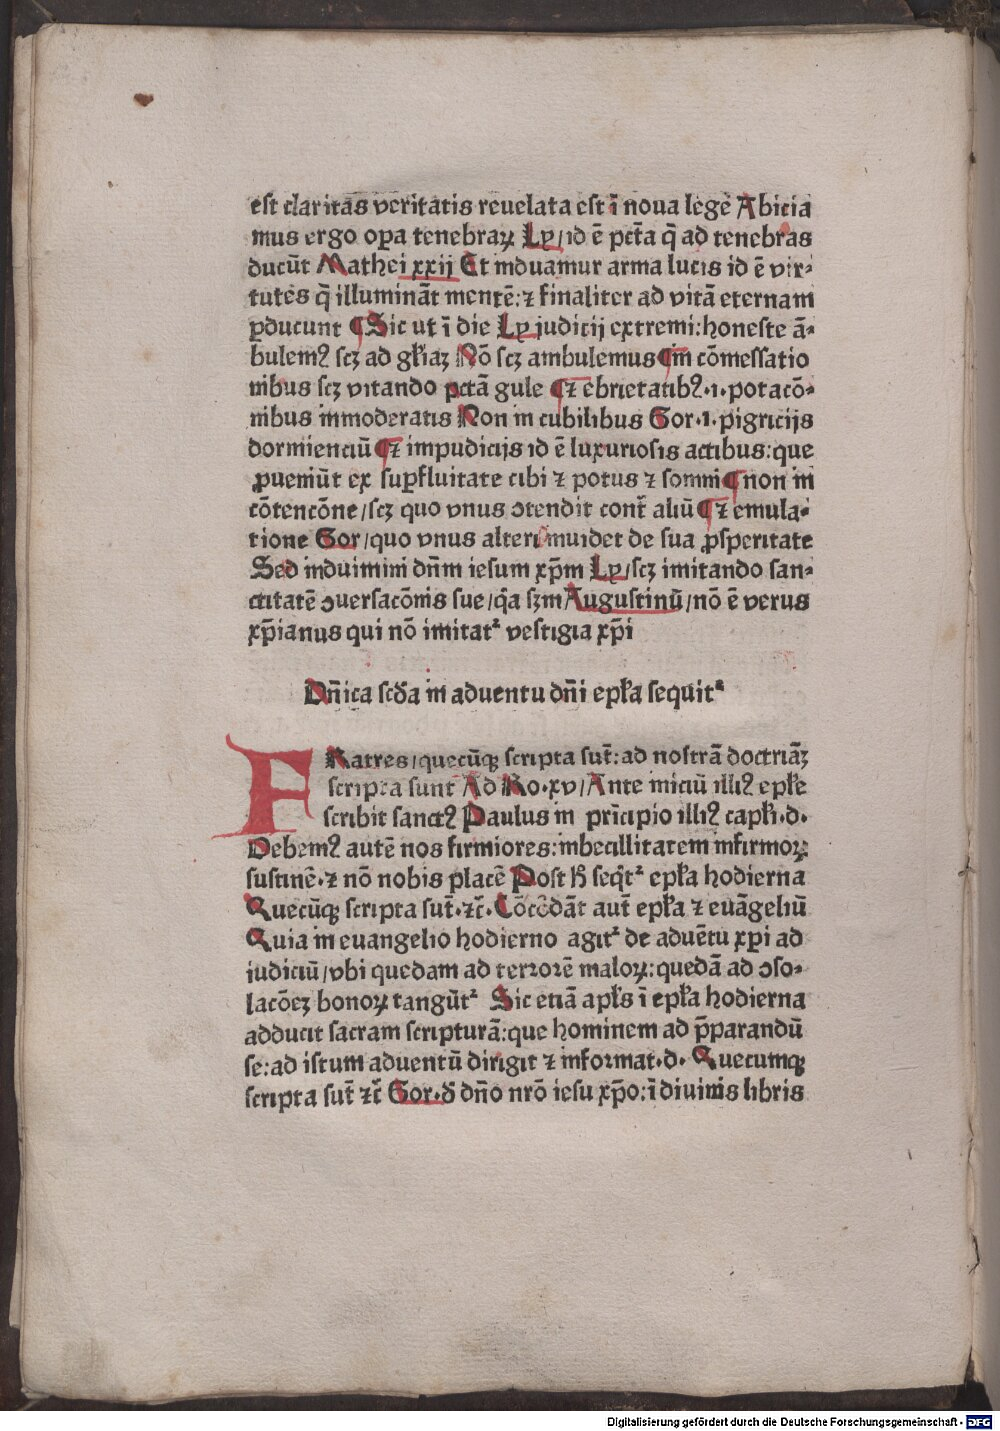 est claritas veritatis reuelata est ī noua legē Abicia
mus ergo oꝑa tenebraꝝ Ly/id ē pctā q̄ ad tenebras
ducūt Mathei xxij Et induamur arma lucis id ē vir-
tutes q̄ illumināt mentē:⁊ finaliter ad vitā eternam
ꝑducunt ¶Sic ut ī die Ly judicij extremi:honeste ā-
bulemꝰ scꝫ ad głiaꝫ Nō scꝫ ambulemus ¶in cōmessatio
nibus scꝫ vitando pctā gule ¶⁊ ebrietatibꝰ.i.potacō-
nibus inmoderatis Non in cubilibus Gor.i.pigricijs
dormienciū ¶⁊ impudicijs id ē luxuriosis actibus:que
ꝓueniūt ex suꝑfluitate cibi ⁊ potus ⁊ somni ¶non in
cōtencōne/scꝫ quo vnus ↄtendit cont̄ aliū ¶⁊ emula-
tione Gor/quo vnus alteri inuidet de sua ꝓsperitate
Sed induimini dn̄m iesum xp̄m Ly/scꝫ imitando san-
ctitatē ↄuersacōnis sue/q̄a sꝫm Augustinū/nō ē verus
xp̄ianus qui nō imitatᷣ vestigia xp̄i
Dn̄ica scd̄a in aduentu dn̄i epła sequitᷣ
FRatres/quecūqꝫ scripta sūt:ad nostrā doctrināꝫ
scripta sunt Ad Ro.xv/Ante iniciū illiꝰ epłe
scribit sanctꝰ Paulus in pr̄icipio illiꝰ capłi.d.
Debemꝰ autē nos firmiores:inbecillitatem infirmoꝝ
sustinē.⁊ nō nobis placē Post h̄ seqt̄ᷣ epła hodierna
Quecūqꝫ scripta sūt.⁊c̄.Cōcōdāt aut̄ epła ⁊ euāgeliū
Quia in euangelio hodierno agitᷣ de aduētu xp̄i ad
iudiciū/vbi quedam ad terrorē maloꝝ:quedā ad ↄso-
lacōeꝫ bonoꝝ tangūtᷣ Sic etiā apłs ī epła hodierna
adducit sacram scripturā:que hominem ad p̄parandū
se:ad istum aduentū dirigit ⁊ informat.d. Quecumqꝫ
scripta sūt ⁊c̄ Gor.d̄ dn̄o nrō iesu xp̄o:ī diuinis libris
Digitalisierung gefördert durch die Deutsche Forschungsgemeinschaft - DFG